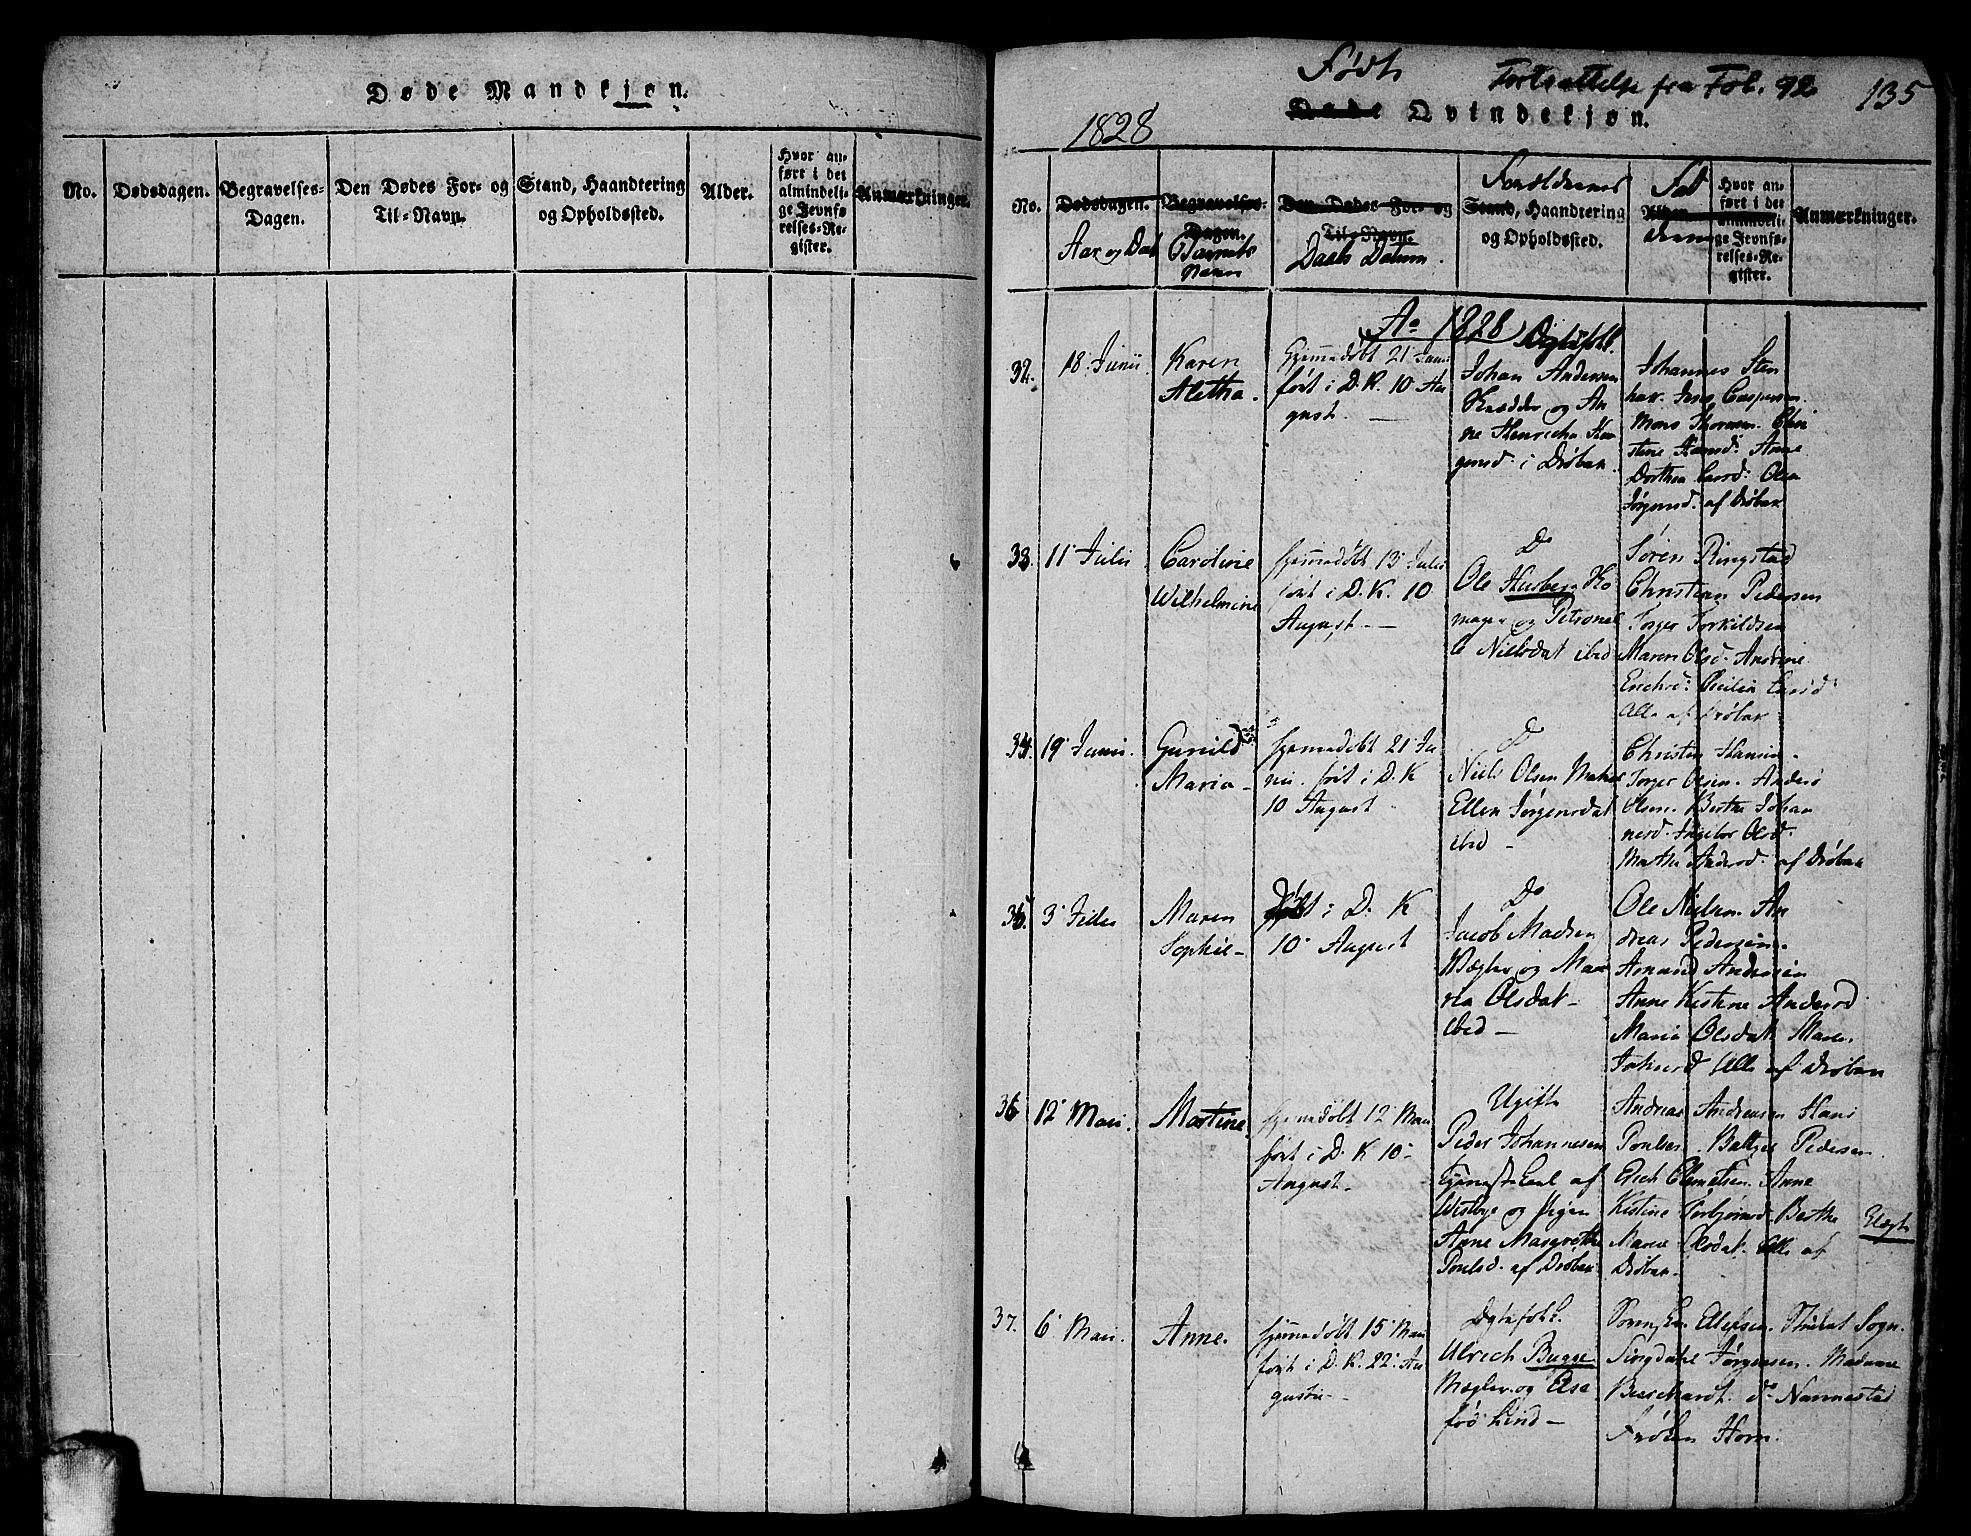 Døde Mandkjøn.
No.
Dødsdagen.
Begravelses-
Dagen.
Den Dødes For- og
Til-Navn.
Stand, Haandtering
og Opholdssted.
Alder.
Hvor an-
ført i det
almindeli-
ge Jevnfø
relses-Re-
gister.
Anmærkninger.
Født Fortsættelse fra Fol. 92 135
1828 Døde Qvindekjøn.
No.
Dødsdagen.
Aar og Dat
Begravelses-
Dagen.
Barnets
Navn
Den Dødes For- og
Til-Navn.
Daabs Datum.
Forældrenes
Stand, Haandtering
og Opholdssted.
Alder.
Hvor an-
ført i det
almindeli-
ge Jevnfø-
relses-Re-
gister.
Anmærkninger.
Ao 1828
32. 18 Junii
Karen
Aletha.
Hjemedøbt 21 Junii
ført i D. K. 10 Au
gust.
Ægtefolk.
Johan Andersen
Skrædder og An
ne Henricha Haa
gensd. i Drøbak.
Johannes Sten
Jens Caspersen.
Mons Thoresen. Chri
stine Hansd: Anne
Dorthea Larsd: Olea
Jørgensd. af Drøbak
33. 11 Julii
Caroline
Wilhelmine
Hjemedøbt 13 Julii
ført i D. K. 10
August.
Do
Ole Husberg Sko
mager og Petronel
le Nielsdat ibid
Søren Ringstad
Christian Pedersen
Torger Torkildsen
Maren Olsd. Andrine
Erichsd: Cecilia Larsd
Alle af Drøbak
34. 19 Junii.
Gunild
Maria
Hjemedøbt 21 Ju
nii. ført i D. K
10 August
Do
Niels Olsen
Ellen Jørgensdat
ibid
Christen Hansen
Torger Olsen. Anders
Olsen. Berthe Johan
nesd. Ingebor Olsd.
Marthe Andersd. af Drøbak
35. 3 Julii
Maren
Sophie
Døbt i D. K
10 August
Do
Jacob Madsen
Mægler og Ma
ria Olsdat
ibid
Ole Nielsen. An
dreas Pedersen.
Amund Andersen
Anne Kistine Andersd
Maria Olsdat. Maren
Johnsd Alle af Drøbak
36 12 Maii.
Martine
Hjemedøbt 12 Maii
ført i D. K 10
August
Ugifte
Peder Johannesen
Tjenestekarl af
Westbye og Pigen
Anne Margrethe
Poulsd. af Drøbak
Andreas Andresen Hans
Poulsen. Baltzer Pedersen.
Erich Clemetsen. Anne
Kistine Torbjørnsd. Berthe
Marie Olsdat. Alle af
Drøbak.
Uægte
37. 6 Maii.
Anne.
Hjemedøbt 15 Maii
ført i D. K. 22 Au
gustii
Ægtefolk.
Ulrich Bugge
Mægler og Else
født Lind
Søren Ellefsen. Student Sogn.
Tingdahl Jørgensen. Madame
Burchardt. do Nannestad
Frøken Horn.